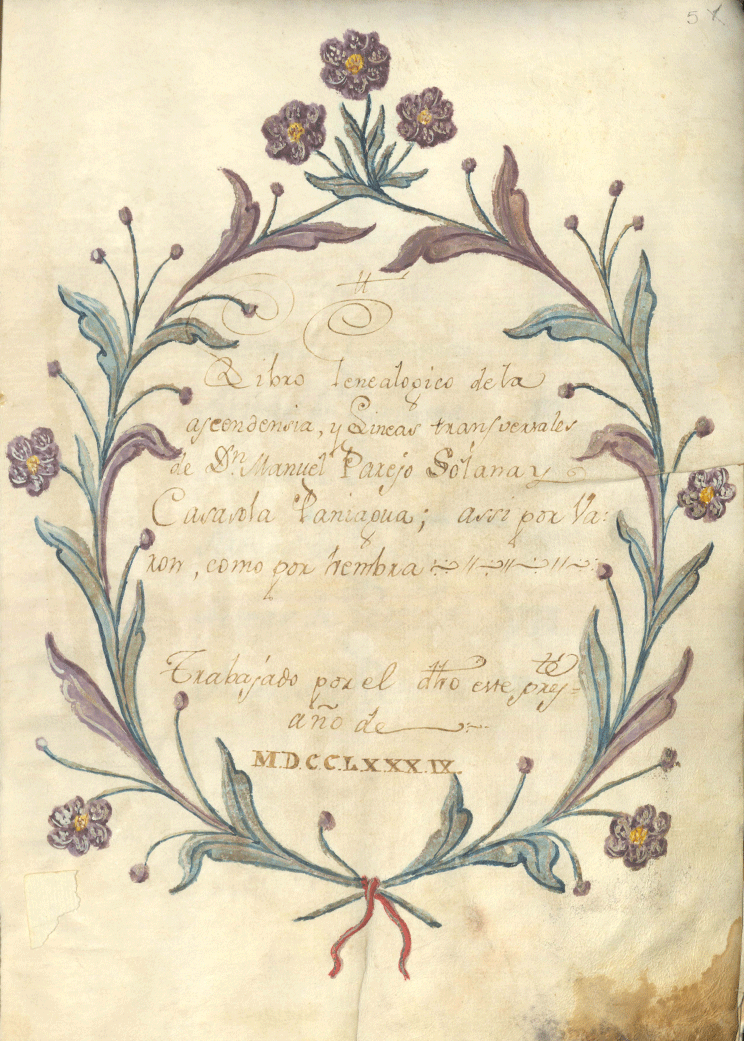 5
Libro Genealogico de la
ascendensia, y Lineas transversales
de Dn. Manuel Parejo Solana y
Casasola Paniagua; assi por Va=
ron, como por hembra
Trabajado por el dho este preste
año de
M.D.C.C.L.X.X.X.IX.